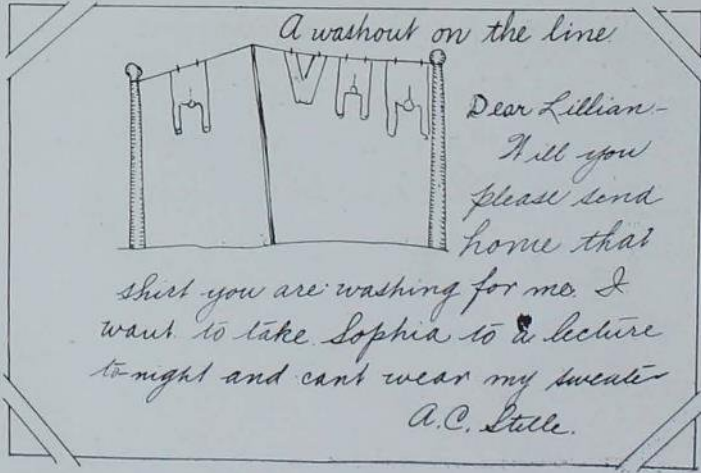 A washout on the line.
Dear Lillian—
Will you
please send
home that
shirt you are washing for me. I
want to take Sophia to a lecture
to-night and cant wear my sweater
A.C. Stelle.